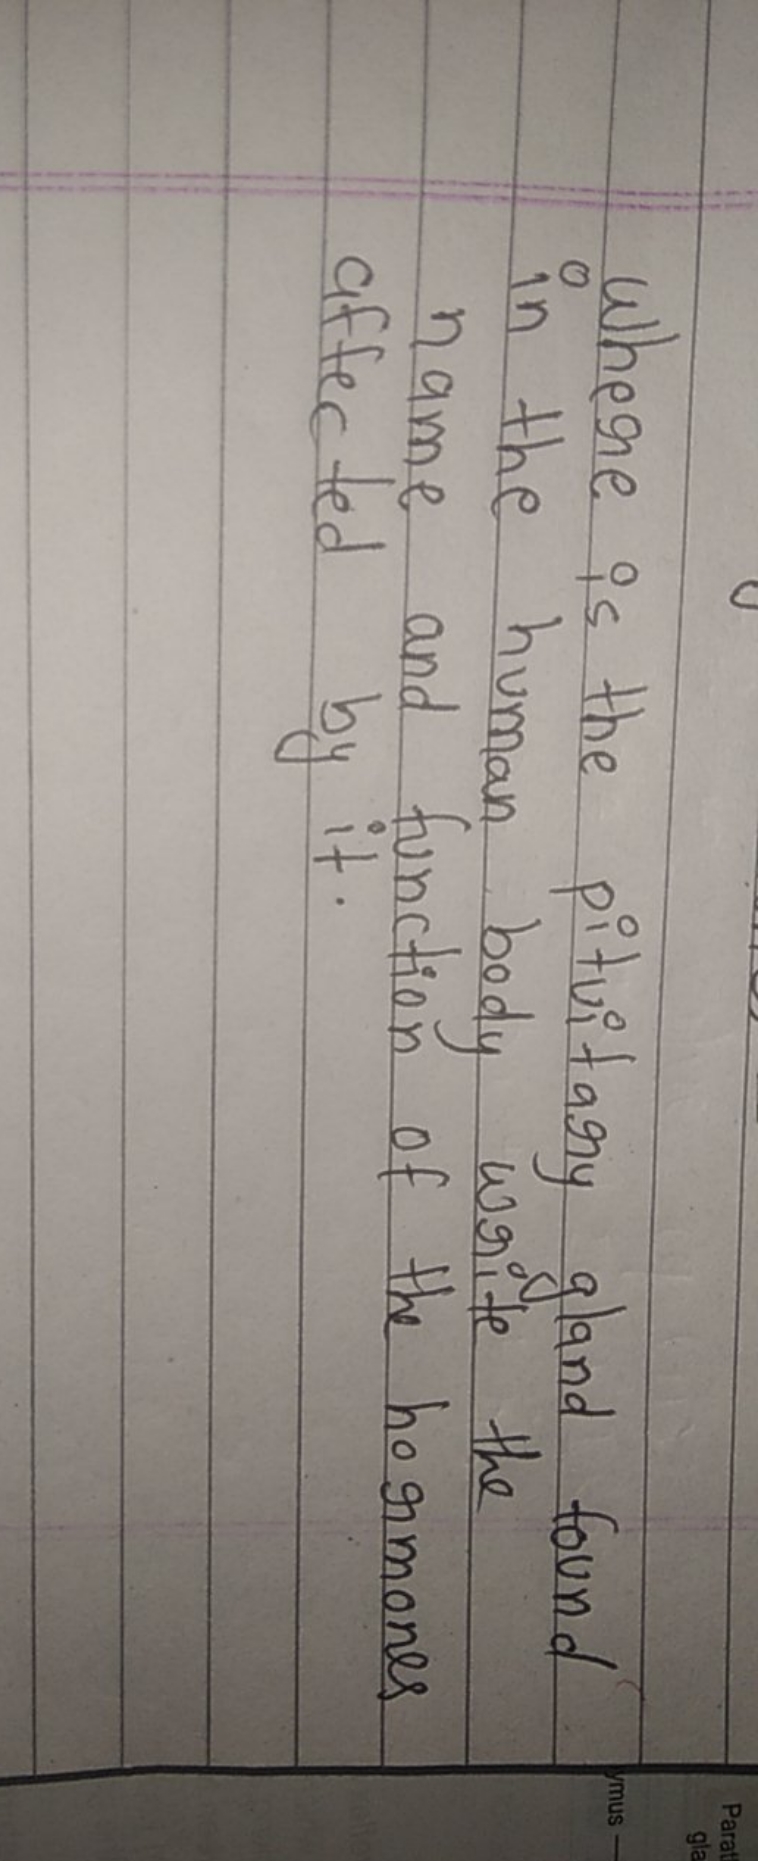 where is the pituitary gland found
in the human body write the
name and function of the hormones
affected by it.
ymus
Parat
gla